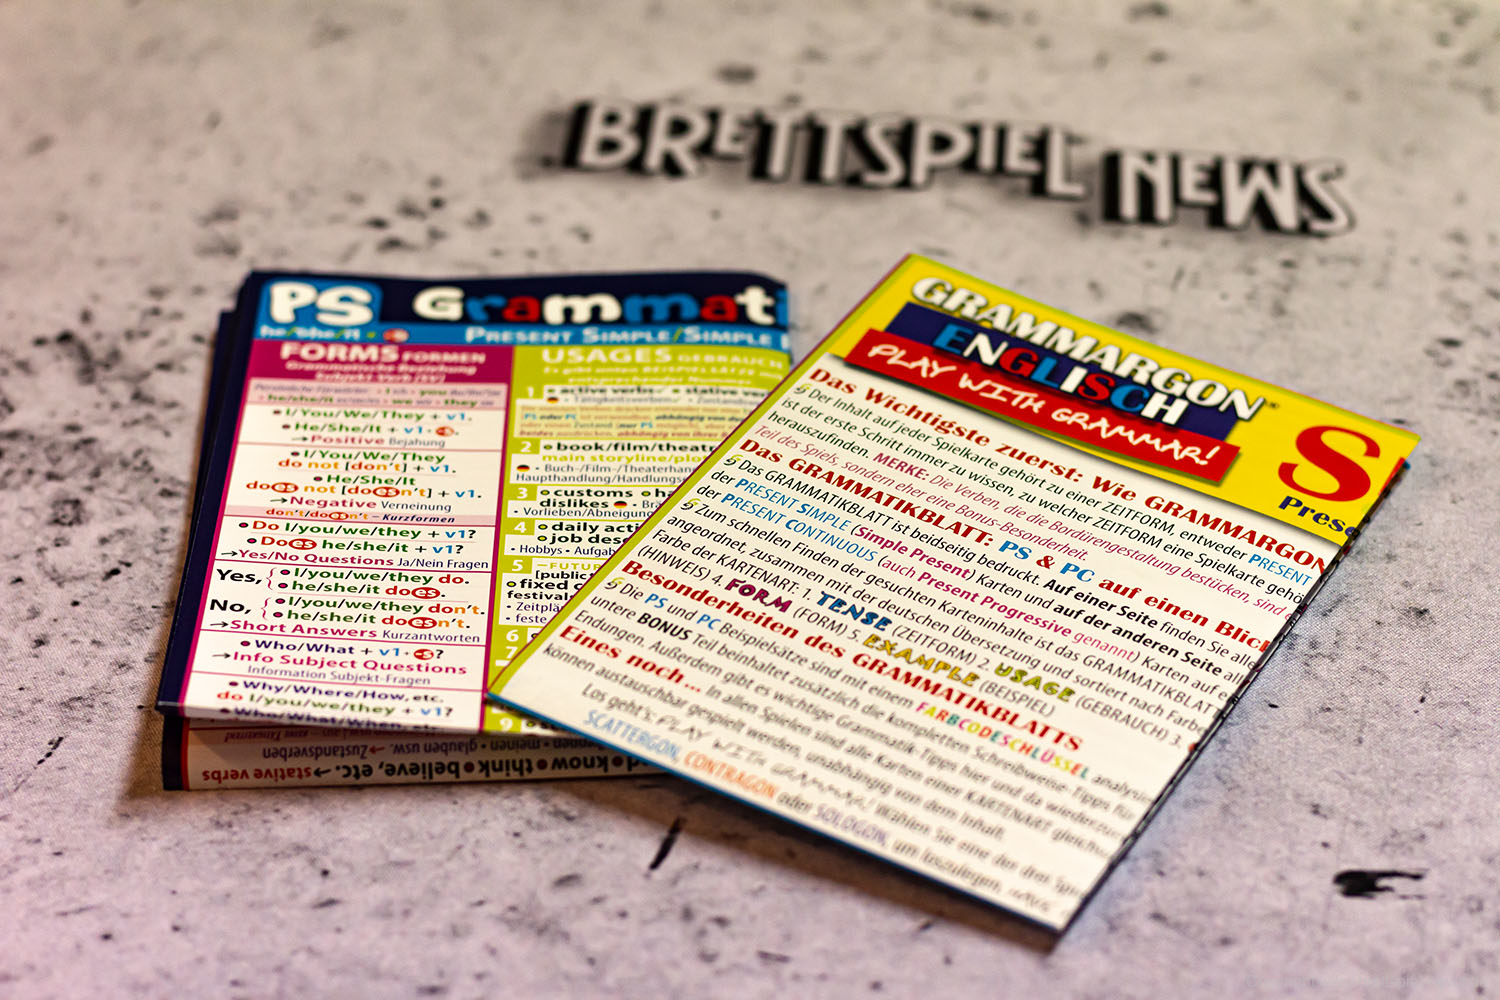 BRETTSPIEL NEWS
PS Grammati
he/she/it
PRESENT SIMPLE/SIMPLE
FORMS FORMEN
Grammatische Beziehung
Subjekt-Verb (SV)
• I/You/We/They + v1.
• He/She/It + v1·es.
→Positive Bejahung
• I/You/We/They
do not [don't] + v1.
• He/She/It
does not [doesn't] + v1.
→Negative Verneinung
don't/doesn't – Kurzformen
• Do I/you/we/they + v1?
• Does he/she/it + v1?
→Yes/No Questions Ja/Nein Fragen
Yes, { • I/you/we/they do.
• he/she/it does.
No, { • I/you/we/they don't.
• he/she/it doesn't.
→Short Answers Kurzantworten
• Who/What + v1·es?
→Info Subject Questions
Information Subjekt-Fragen
• Why/Where/How, etc.
do I/you/we/they + v1?
USAGES GEBRAUCH
1 • active verbs • stative ve
2 • book/film/theatr
main storyline/plo
• Buch-/Film-/Theaterhan
Haupthandlung/Handlungs
3 • customs • ha
dislikes • Brä
• Vorlieben/Abneigung
4 • daily acti
• job des
• Hobbys • Aufgab
5 –FUTUR
[public
• fixed c
festival
• Zeitplä
• feste
6
7
9
know • think • believe, etc. →stative verbs
meinen • glauben usw. → Zustandsverben
GRAMMARGON®
ENGLISCH
PLAY WITH GRAMMAR!
S
Pres
Das Wichtigste zuerst: Wie GRAMMARGON
Der Inhalt auf jeder Spielkarte gehört zu einer ZEITFORM, entweder PRESENT
ist der erste Schritt immer zu wissen, zu welcher ZEITFORM eine Spielkarte gehö
herauszufinden. MERKE: Die Verben, die die Bordürengestaltung bestücken, sind
Teil des Spiels, sondern eher eine Bonus-Besonderheit.
Das GRAMMATIKBLATT: PS & PC auf einen Blick
Das GRAMMATIKBLATT ist beidseitig bedruckt. Auf einer Seite finden Sie alle
der PRESENT SIMPLE (Simple Present) Karten und auf der anderen Seite
der PRESENT CONTINUOUS (auch Present Progressive genannt) Karten auf e
Zum schnellen Finden der gesuchten Karteninhalte ist das GRAMMATIKBLATT
angeordnet, zusammen mit der deutschen Übersetzung und sortiert nach Farb
Farbe der KARTENART: 1. TENSE (ZEITFORM) 2. USAGE (GEBRAUCH) 3.
(HINWEIS) 4. FORM (FORM) 5. EXAMPLE (BEISPIEL)
Besonderheiten des GRAMMATIKBLATTS
Die PS und PC Beispielsätze sind mit einem FARBCODESCHLÜSSEL analys
untere BONUS Teil beinhaltet zusätzlich die kompletten Schreibweise-Tipps für
Endungen. Außerdem gibt es wichtige Grammatik Tipps hier und da wiederzu
Eines noch... In allen Spielen sind alle Karten einer KARTENART gleich
können austauschbar gespielt werden, unabhängig von dem Inhalt.
Los geht's: PLAY WITH GRAMMAR! Wählen Sie eine der drei Spi
SCATTERGON, CONTRAGON oder SOLOGON, um loszulegen,